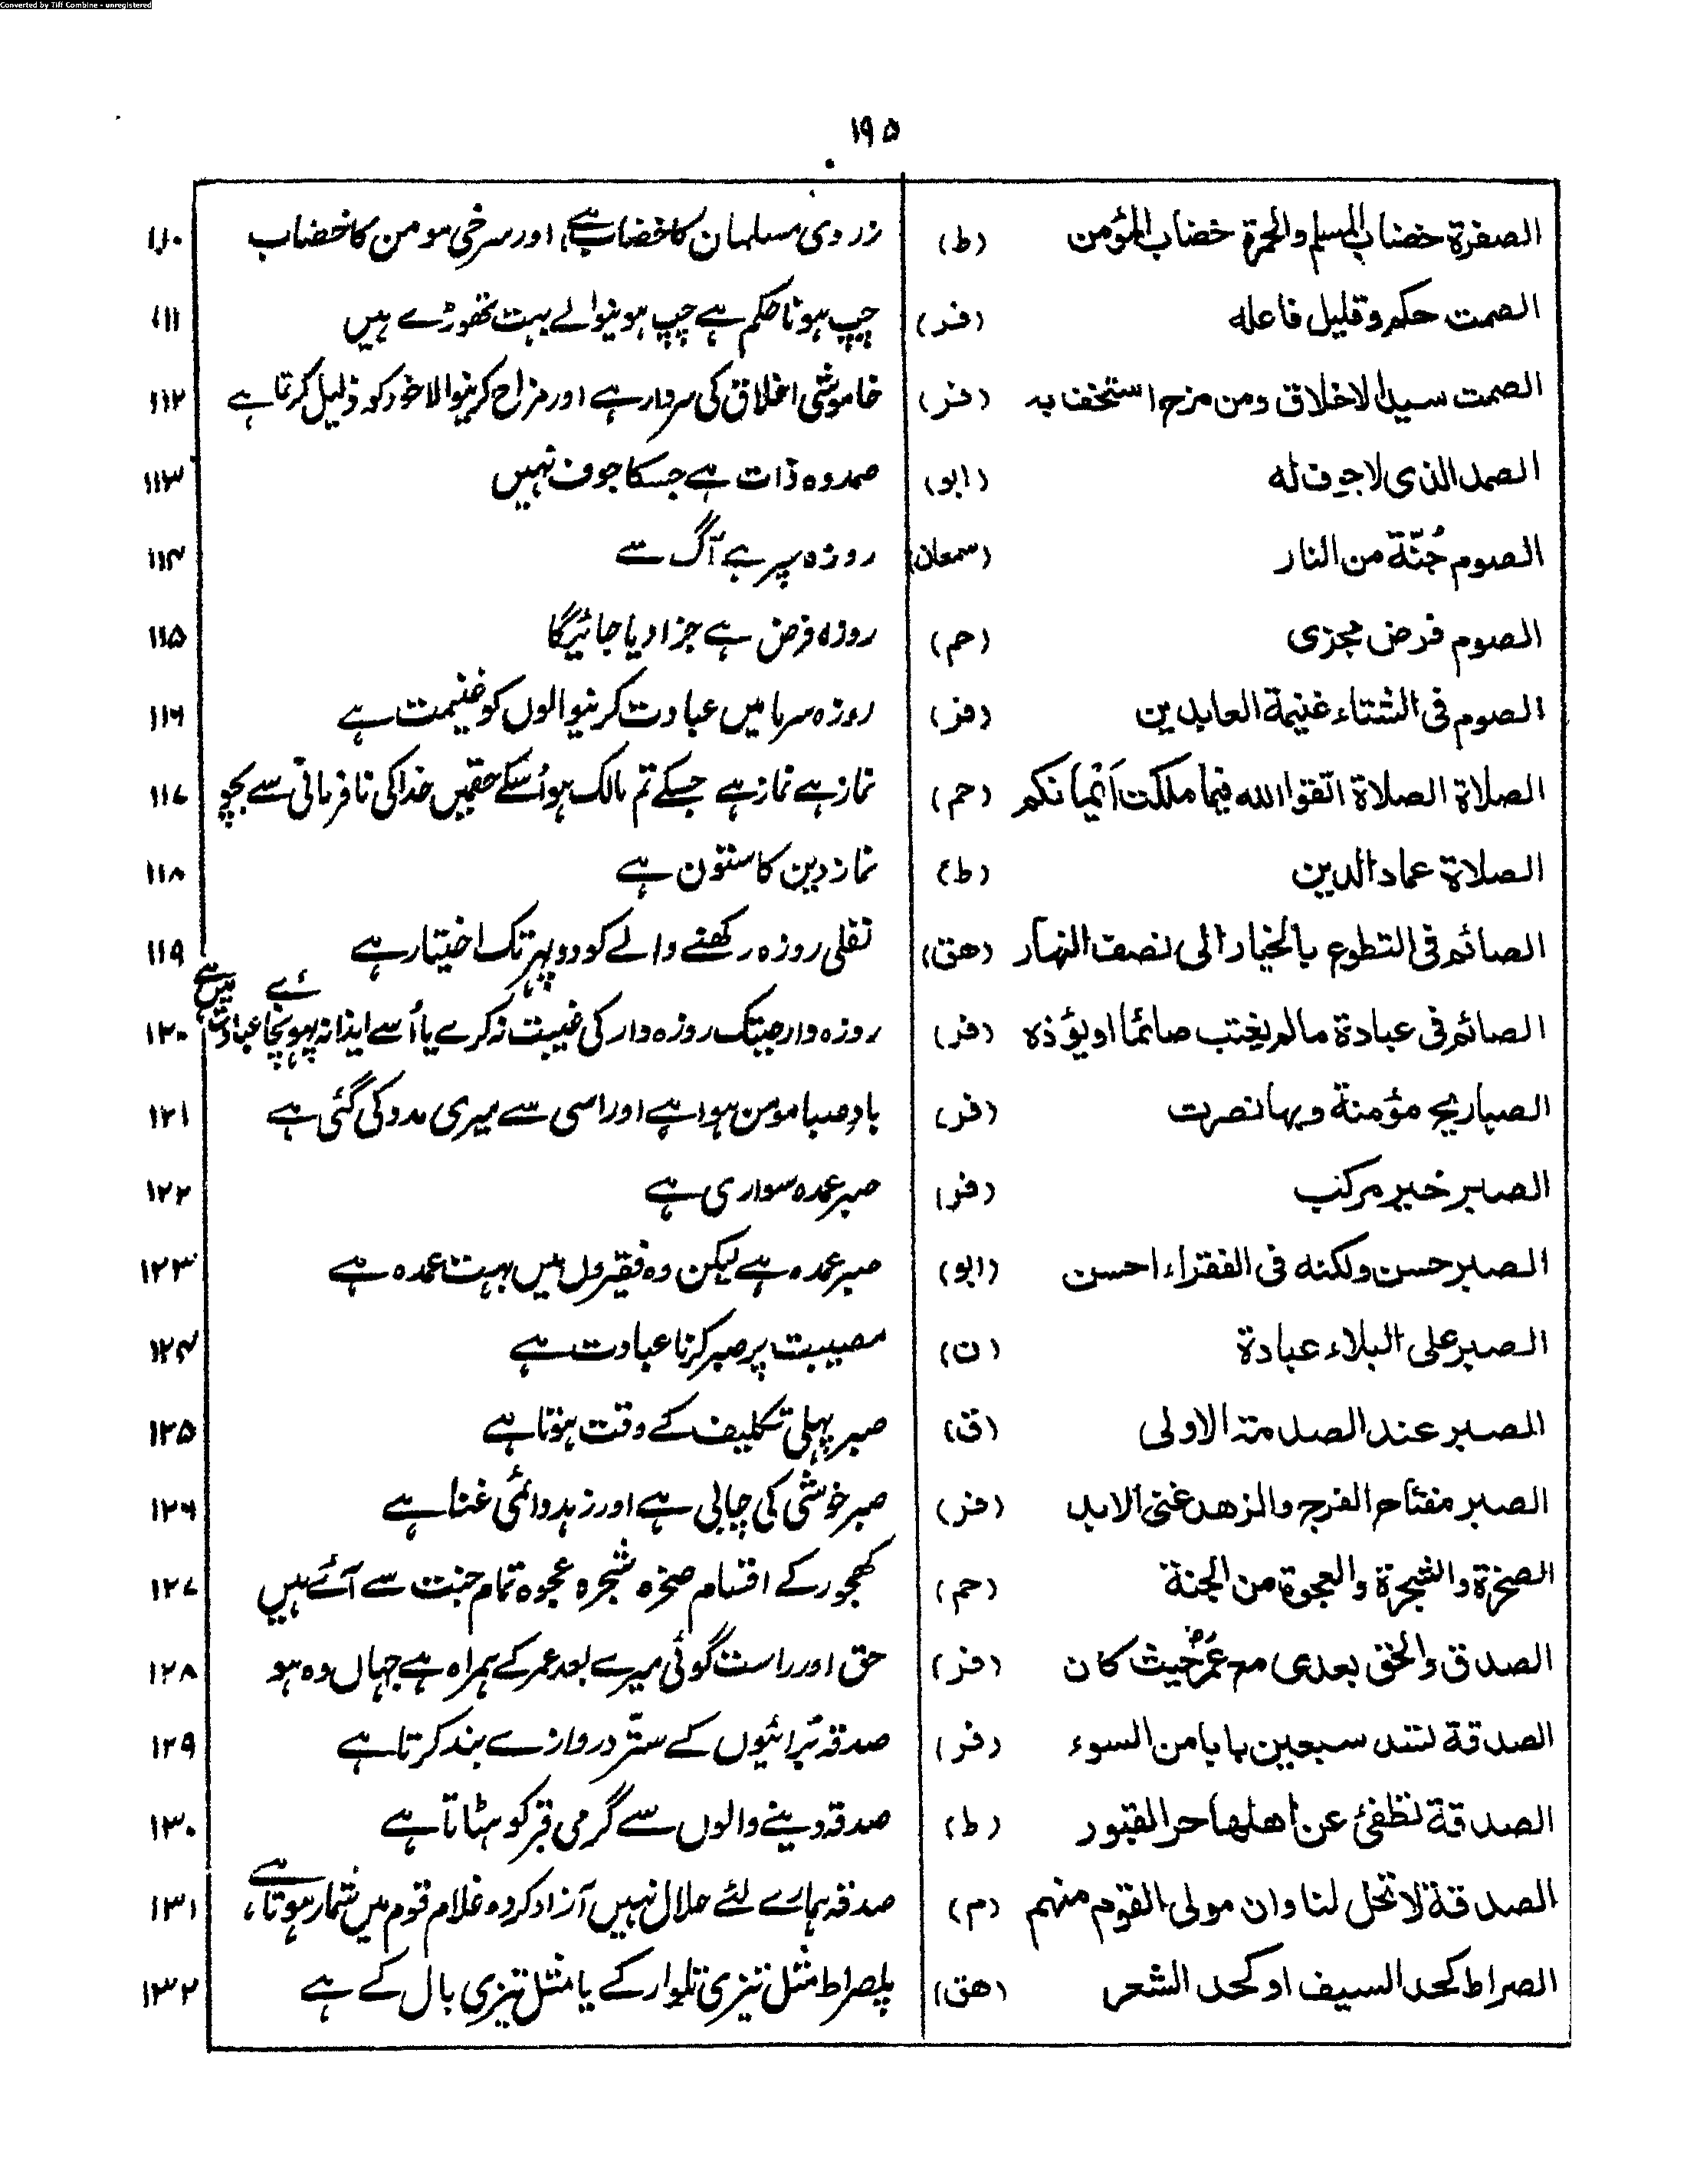 Converted by Tiff Combine - unregistered
۱۹۵
الصفرة خضاب المسلم والحمرة خضاب المؤمن (ط) زردی مسلمان کا خضاب ہے، اور سرخی مومن کا خضاب ۱۱۰
الصمت حکم وقلیل فاعلہ (فر) چپ ہونا حکم ہے چپ ہونیوالے بہت تھوڑے ہیں ۱۱۱
الصمت سید الاخلاق ومن مزح استخف بہ (فر) خاموشی اخلاق کی سردار ہے اور مزاح کرنیوالا خود کو ذلیل کرتا ہے ۱۱۲
الصمد الذی لا جوف لہ (ابو) صمد وہ ذات ہے جسکا جوف نہیں ۱۱۳
الصوم جُنّة من النار (سمعان) روزہ سپر ہے آگ سے ۱۱۴
الصوم فرض مجزی (حم) روزہ فرض ہے جزا دیا جائیگا ۱۱۵
الصوم فی الشتاء غنیمة العابدین (فر) روزہ سرما میں عبادت کرنیوالوں کو غنیمت ہے ۱۱۶
الصلاة الصلاة اتقوا اللہ فیما ملکت اَیْمانکم (حم) نماز ہے نماز ہے جسکے تم مالک ہو اُسکے حقمیں خدا کی نافرمانی سے بچو ۱۱۷
الصلاة عماد الدین (ط) نماز دین کا ستون ہے ۱۱۸
الصائم فی التطوع بالخیار الی نصف النہار (ھق) نفلی روزہ رکھنے والے کو دوپہر تک اختیار ہے ۱۱۹
الصائم فی عبادة مالم یغتب صائما او یؤذہ (فر) روزہ دار جبتک روزہ دار کی غیبت نہ کرے یا اُسے ایذا نہ پہونچائے عبادت میں ہے ۱۲۰
الصبا ریح مؤمنة وبہا نصرت (فر) بادِ صبا مومن ہوا ہے اور اسی سے میری مدد کی گئی ہے ۱۲۱
الصبر خیر مرکب (فر) صبر عمدہ سواری ہے ۱۲۲
الصبر حسن ولکنہ فی الفقراء احسن (ابو) صبر عمدہ ہے لیکن وہ فقیروں میں بہت عمدہ ہے ۱۲۳
الصبر علی البلاء عبادة (ن) مصیبت پر صبر کرنا عبادت ہے ۱۲۴
الصبر عند الصدمة الاولی (ق) صبر پہلی تکلیف کے وقت ہوتا ہے ۱۲۵
الصبر مفتاح الفرج والزھد غنی الابد (فر) صبر خوشی کی چابی ہے اور زہد دائمی غنا ہے ۱۲۶
الصخرة والشجرة والعجوة من الجنة (حم) کھجور کے اقسام صخرہ شجرہ عجوہ تمام جنت سے آئے ہیں ۱۲۷
الصدق والحق بعدی مع عمرؓ حیث کان (فر) حق اور راست گوئی میرے بعد عمر کے ہمراہ ہے جہاں وہ ہو ۱۲۸
الصدقة لتسد سبعین بابا من السوء (فر) صدقہ بُرائیوں کے ستّر دروازے بند کرتا ہے ۱۲۹
الصدقة تطفئ عن اھلہا حر القبور (ط) صدقہ دینے والوں سے گرمی قبر کو ہٹاتا ہے ۱۳۰
الصدقة لا تحل لنا وان مولی القوم منہم (م) صدقہ ہمارے لئے حلال نہیں آزاد کردہ غلام قوم میں شمار ہوتا ہے، ۱۳۱
الصراط کحد السیف او کحد الشعر (ھق) پلصراط مثل تیزی تلوار کے یا مثل تیزی بال کے ہے ۱۳۲